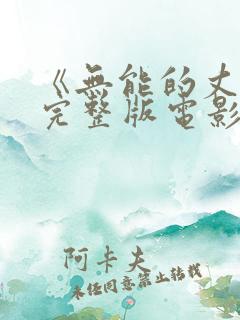 《無能的丈
完整版電影
阿卡夫
未经同意禁止转载